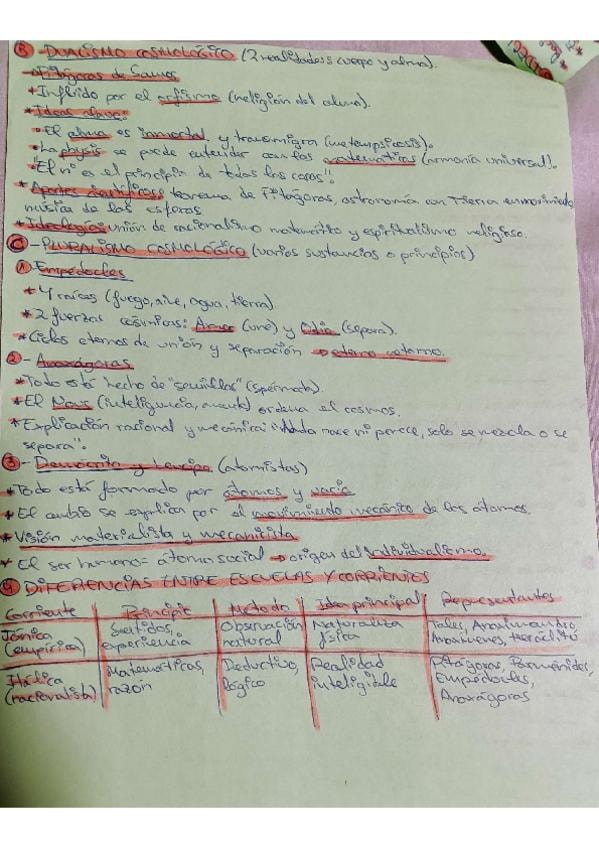 B - DUALISMO COSMOLÓGICO (2 realidades cuerpo y alma).
Pitágoras de Samos
* Influido por el orfismo (religión del alma).
* Ideas clave:
El alma es inmortal y transmigra (metempsicosis).
La physis se puede entender con las matemáticas (armonía universal).
"El nº es el principio de todas las cosas".
* Aportes científicos: teorema de Pitágoras, astronomía con Tierra en movimiento,
música de las esferas
* Ideología: unión de racionalismo matemático y espiritualismo religioso.
C - PLURALISMO COSMOLÓGICO (varios sustancias o principios)
1 Empédocles
* 4 raíces (fuego, aire, agua, tierra).
* 2 fuerzas cósmicas: Amor (une) y Odio (separa).
* Ciclos eternos de unión y separación → eterno retorno.
2 - Anaxágoras
* Todo está hecho de "semillas" (spérmata).
* El Nous (inteligencia, mente) ordena el cosmos.
* Explicación racional y mecánica: nada nace ni perece, solo se mezcla o se
separa".
3 - Demócrito y Leucipo (atomistas)
* Todo está formado por átomos y vacío
* El cambio se explica por el movimiento mecánico de los átomos.
* Visión materialista y mecanicista
* El ser humano = átomo social → origen del individualismo.
4 DIFERENCIAS ENTRE ESCUELAS Y CORRIENTES
Corriente Principio Método Idea principal Representantes
Jónica (empírica) Sentidos, experiencia Observación natural Naturaleza física Tales, Anaximandro, Anaxímenes, Heráclito
Itálica (racionalista) Matemáticas, razón Deductivo, lógico Realidad inteligible Pitágoras, Parménides, Empédocles, Anaxágoras